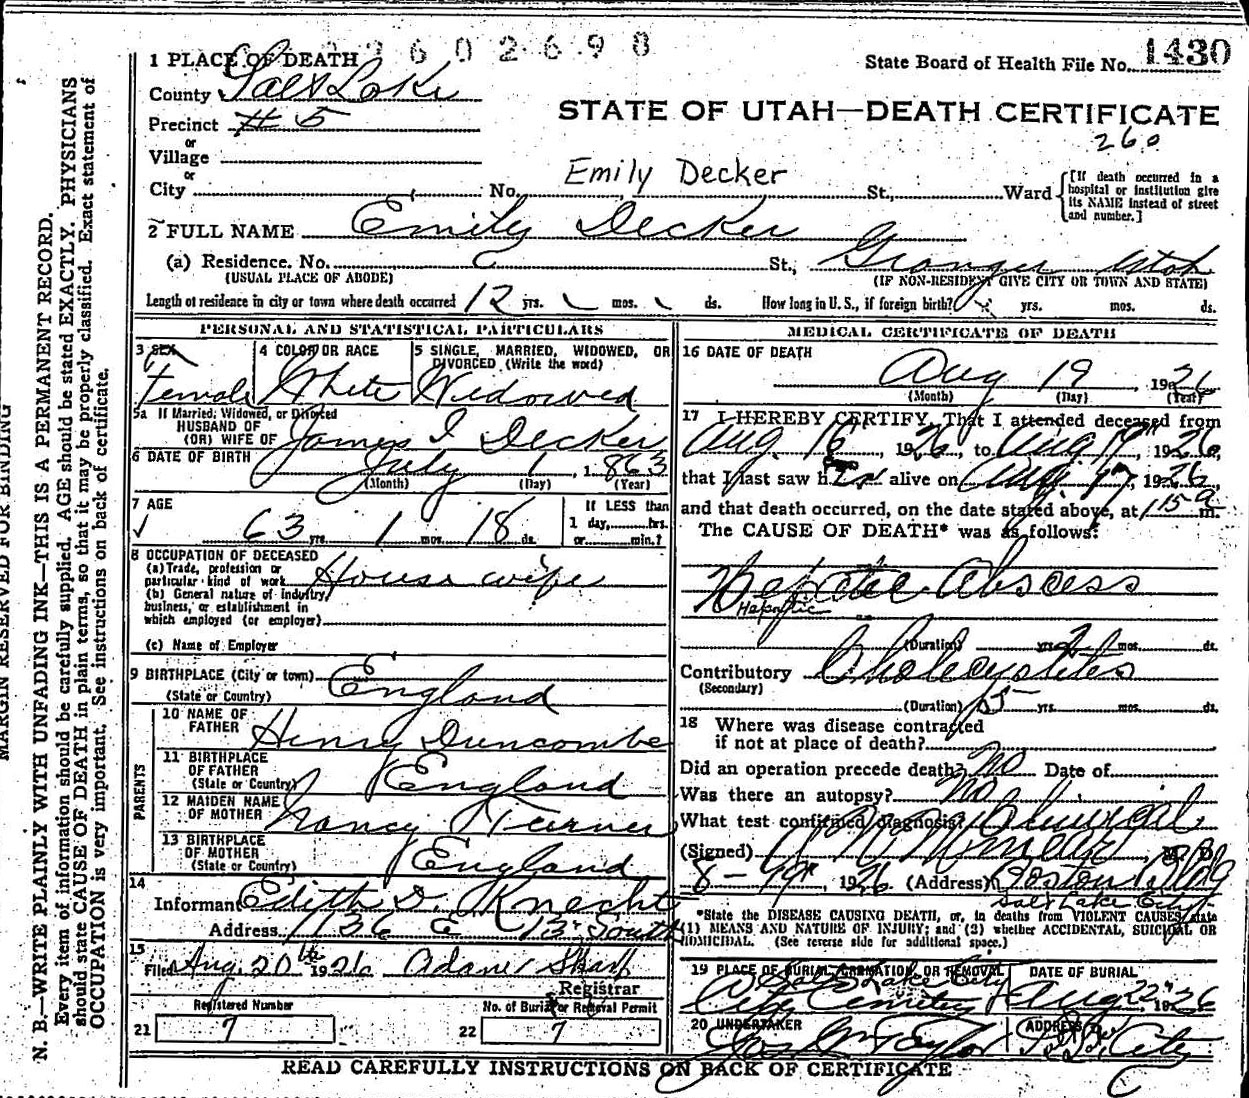 2602690
1 PLACE OF DEATH
State Board of Health File No. 1430
County Salt Lake
STATE OF UTAH—DEATH CERTIFICATE
Precinct # 5
260
or
Village
or
City No. Emily Decker St., Ward
[If death occurred in a hospital or institution give its NAME instead of street and number.]
2 FULL NAME Emily Decker
(a) Residence. No. St., Granger Utah
(USUAL PLACE OF ABODE) (IF NON-RESIDENT GIVE CITY OR TOWN AND STATE)
Length of residence in city or town where death occurred 12 yrs. mos. ds. How long in U. S., if foreign birth? yrs. mos. ds.
PERSONAL AND STATISTICAL PARTICULARS
3 SEX Female
4 COLOR OR RACE White
5 SINGLE, MARRIED, WIDOWED, OR DIVORCED (Write the word) Widowed
5a If Married, Widowed, or Divorced
HUSBAND OF
(OR) WIFE OF James I Decker
6 DATE OF BIRTH July 1, 1863
(Month) (Day) (Year)
7 AGE 63 yrs. 1 mos. 18 ds.
If LESS than
1 day, hrs.
or min.?
8 OCCUPATION OF DECEASED
(a) Trade, profession or
particular kind of work House wife
(b) General nature of industry,
business, or establishment in
which employed (or employer)
(c) Name of Employer
9 BIRTHPLACE (City or town) England
(State or Country)
PARENTS
10 NAME OF
FATHER Henry Duncombe
11 BIRTHPLACE
OF FATHER England
(State or Country)
12 MAIDEN NAME
OF MOTHER Nancy Turner
13 BIRTHPLACE
OF MOTHER England
(State or Country)
14
Informant Edith D. Knecht
Address 1136 E 13 South
15
Filed Aug. 20th 1926
Registrar
Registered Number
21 7
No. of Burial or Removal Permit
22 7
MEDICAL CERTIFICATE OF DEATH
16 DATE OF DEATH
Aug 19, 1926
(Month) (Day) (Year)
17 I HEREBY CERTIFY, That I attended deceased from
Aug. 16, 1926, to Aug 19, 1926,
that I last saw her alive on Aug. 17, 1926,
and that death occurred, on the date stated above, at 115 a m.
The CAUSE OF DEATH* was as follows:
Hepatic Abscess
Hapatic
(Duration) yrs. 2 mos. ds.
Contributory Cholecystites
(Secondary)
(Duration) 15 yrs. mos. ds.
18 Where was disease contracted
if not at place of death?
Did an operation precede death? No Date of
Was there an autopsy? No
What test confirmed diagnosis?
(Signed) M. D.
8-19, 1926 (Address) Boston Bldg
Salt Lake City
*State the DISEASE CAUSING DEATH, or, in deaths from VIOLENT CAUSES, state
(1) MEANS AND NATURE OF INJURY; and (2) whether ACCIDENTAL, SUICIDAL OR
HOMICIDAL. (See reverse side for additional space.)
19 PLACE OF BURIAL, CREMATION, OR REMOVAL
Salt Lake City
City Cemetery
DATE OF BURIAL
Aug 22, 1926
20 UNDERTAKER
Taylor
ADDRESS
City
READ CAREFULLY INSTRUCTIONS ON BACK OF CERTIFICATE
MARGIN RESERVED FOR BINDING
N. B.—WRITE PLAINLY WITH UNFADING INK—THIS IS A PERMANENT RECORD.
Every item of information should be carefully supplied. AGE should be stated EXACTLY. PHYSICIANS
should state CAUSE OF DEATH in plain terms, so that it may be properly classified. Exact statement of
OCCUPATION is very important. See instructions on back of certificate.